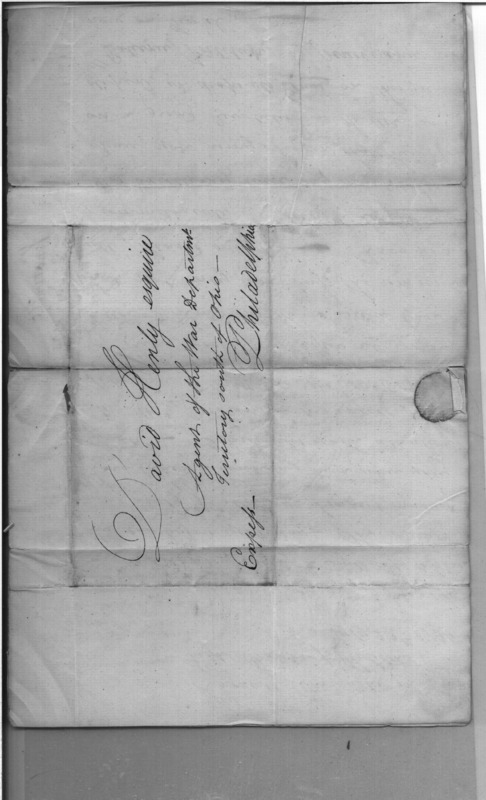 David Henly esquire
Agent of the War Departmt.
Territory south of Ohio—
Express— Philadelphia